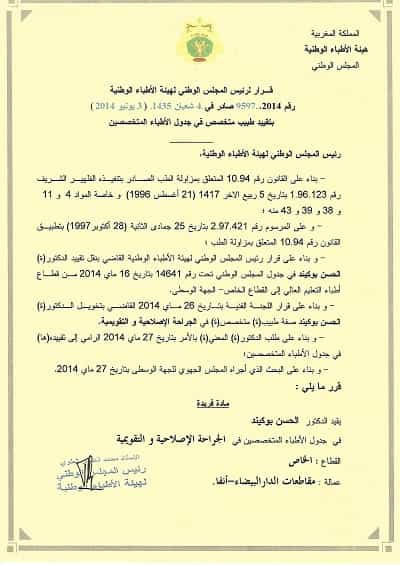 المملكة المغربية
هيئة الأطباء الوطنية
المجلس الوطني
قـرار لرئيس المجلس الوطني لهيئة الأطباء الوطنية
رقم 2014.، 9597 صادر في 4 شعبان 1435. ( 3 يونيو 2014 )
بتقييد طبيب متخصص في جدول الأطباء المتخصصين
رئيس المجلس الوطني لهيئة الأطباء الوطنية،
– بناء على القانون رقم 10.94 المتعلق بمزاولة الطب الصـادر بتنفيـذه الظهيـر الشريف
رقم 1.96.123 بتاريخ 5 ربيع الاخر 1417 (21 أغسطس 1996) و خاصة المواد 4 و 11 و
38 و 39 و 43 منه ؛
– و على المرسوم رقم 2.97.421 بتاريخ 25 جمادى الثانية (28 أكتوبر1997) بتطبيق
القانون رقم 10.94 المتعلق بمزاولة الطب ؛
– و بناء على قرار رئيس المجلس الوطني لهيئة الأطباء الوطنية القاضي بنقل تقييد الدكتور(ة)
الحسن بوكيند في جدول المجلس الوطني تحت رقم 14641 بتاريخ 16 ماي 2014 مـن قطاع
أطباء التعليم العالي إلى القطاع الخاص- الجهة الوسطى.
– و بناء على قرار اللجنـة الفنيـة بتاريـخ 26 ماي 2014 القاضـي بتخويـل الـدكتور(ة)
الحسن بوكيند صفة طبيب(ة) متخصص(ة) في الجراحة الإصلاحية و التقويمية.
– و بناء على طلب الدكتور(ة) المعني(ة) بالأمر بتاريخ 27 ماي 2014 الرامي إلى تقييده(ها)
في جدول الأطباء المتخصصين؛
– و بناء على البحث الذي أجراه المجلس الجهوي للجهة الوسطى بتاريخ 27 ماي 2014.
قرر ما يلي :
مـادة فريـدة
يقيد الدكتور الحسن بوكيند
في جدول الأطباء المتخصصين في الجراحة الإصلاحية و التقويمية
القطاع : الخاص
عمالة : مقاطعات الدارالبيضاء-أنفا.
رئيس المجلس الوطني
لهيئة الأطباء الوطنية